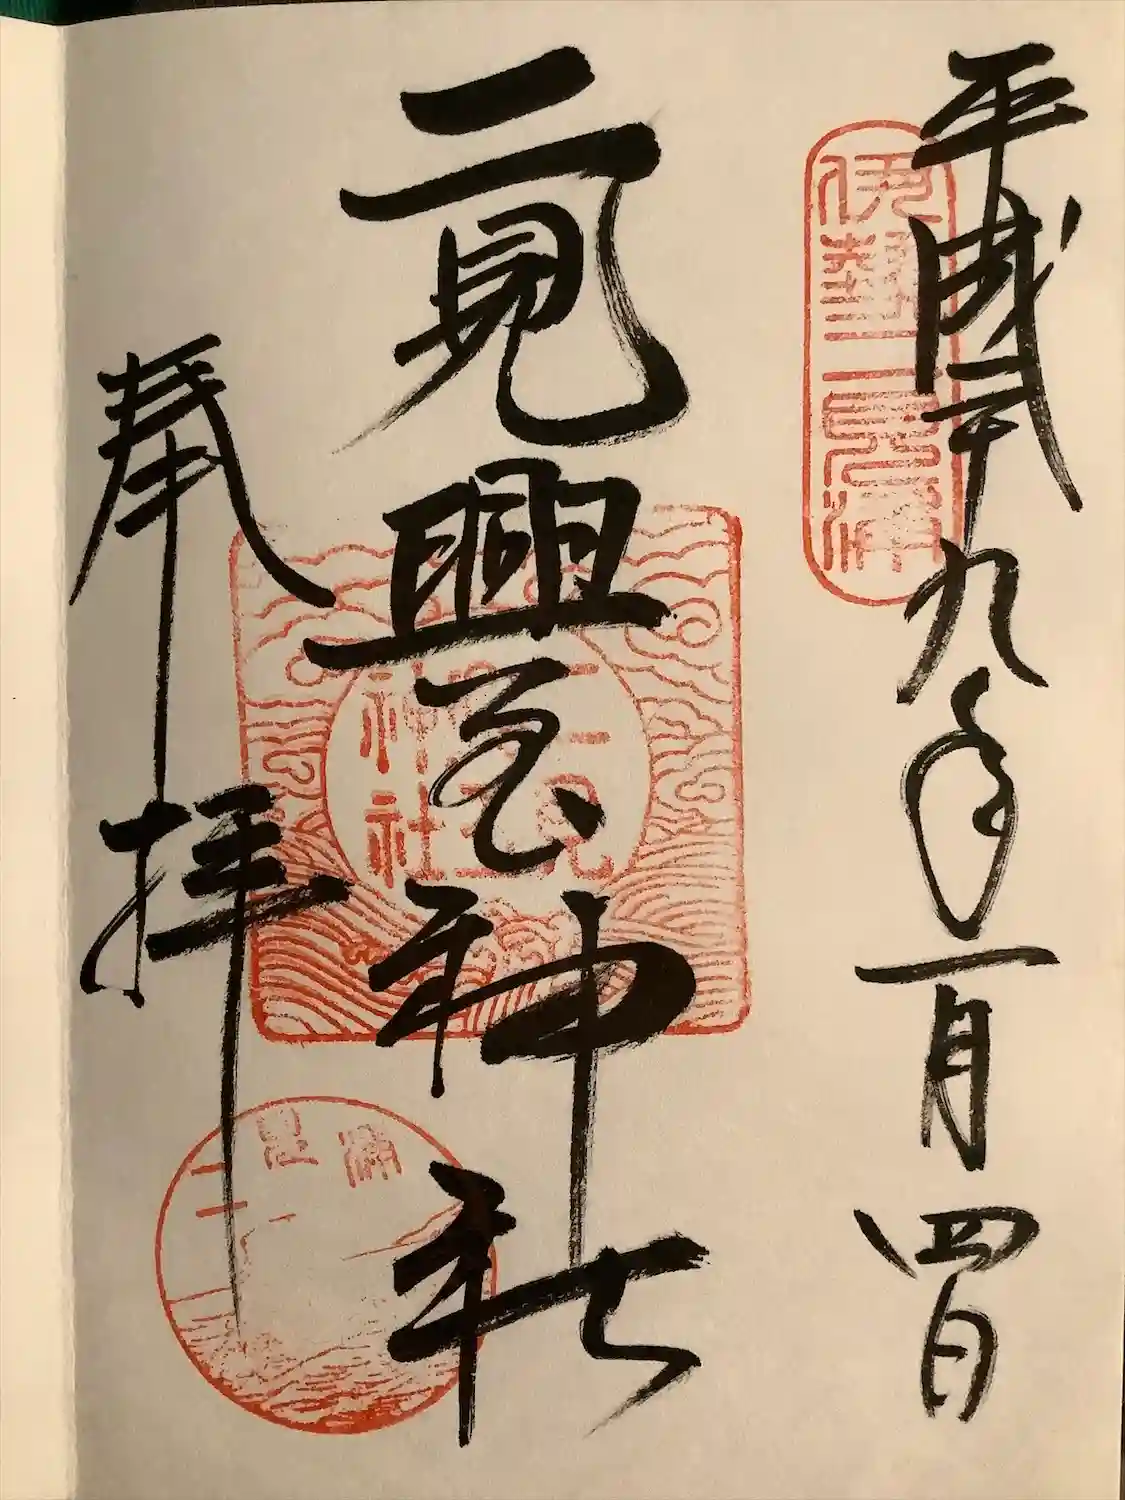 平成二十九年一月四日
伊勢二見
二見興玉神社
二見興玉神社
奉拝